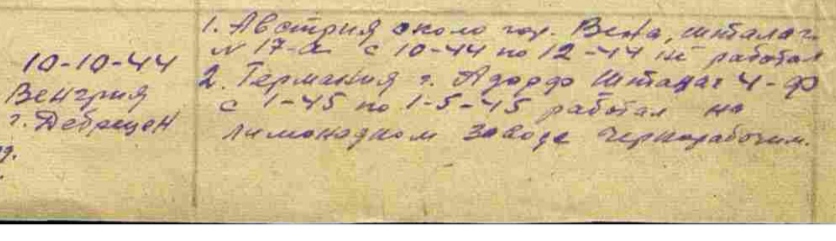 10-10-44
Венгрия
г. Дебрецен
1. Австрия около гор. Вена, шталаг
N 17-а с 10-44 по 12-44 не работал
2. Германия г. Адорф Шталаг 4-Ф
с 1-45 по 1-5-45 работал на
лимонадном заводе чернорабочим.